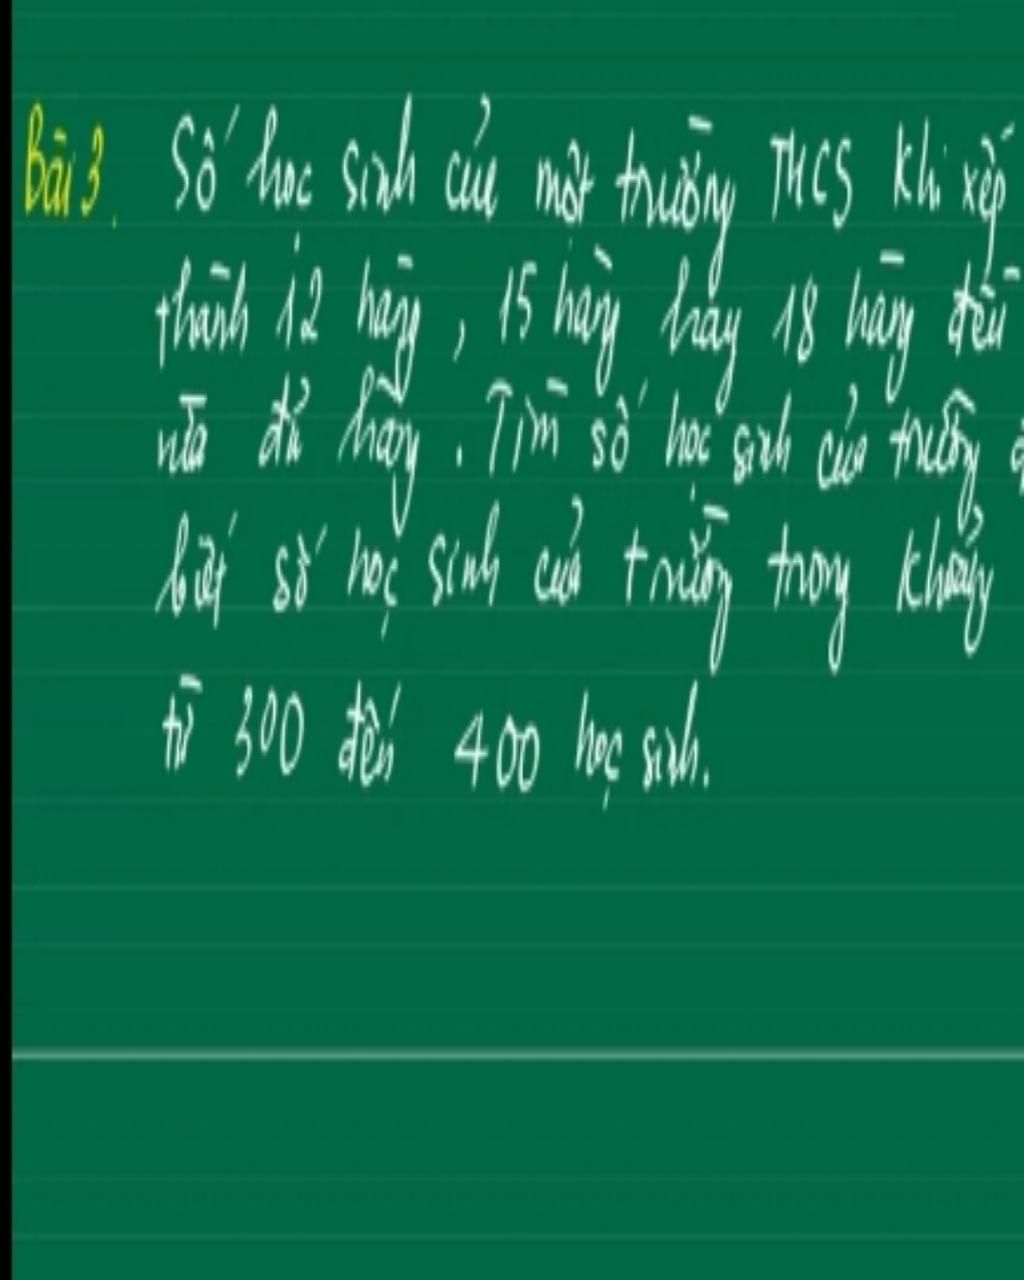 Bài 3. Số học sinh của một trường THCS khi xếp
thành 12 hàng, 15 hàng hay 18 hàng đều
vừa đủ hàng. Tìm số học sinh của trường
biết số học sinh của trường trong khoảng
từ 300 đến 400 học sinh.